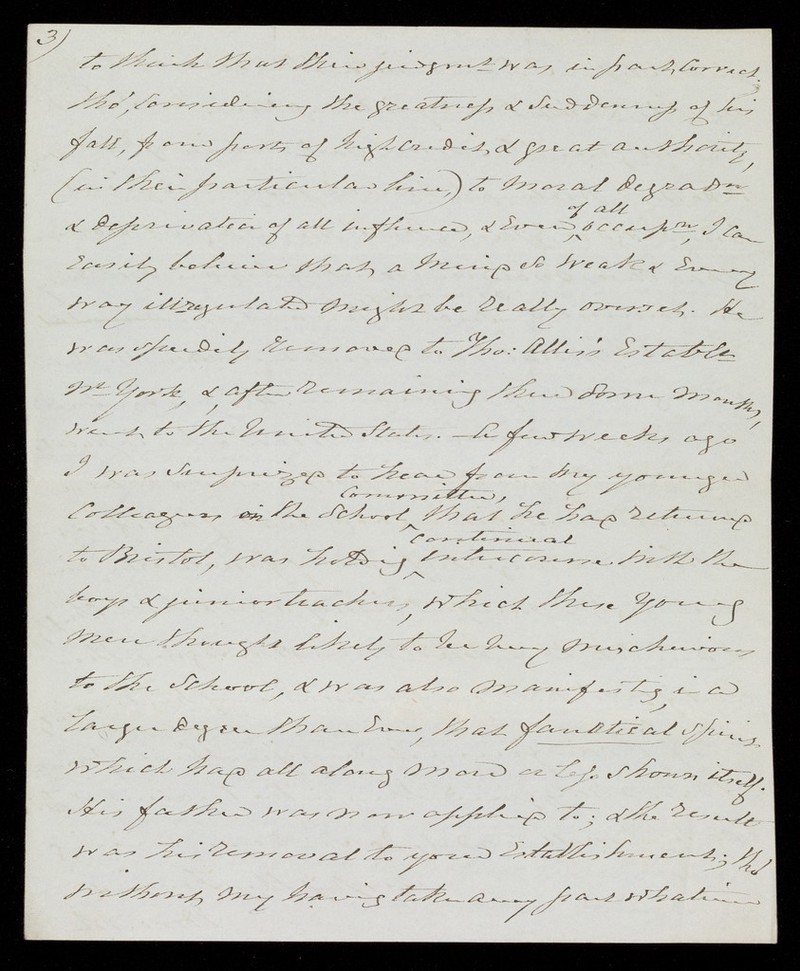 3)
to think that their judgmt was in part correct.
tho', considering the greatness & suddenness of his
fall, from posts of high credit, & great authority,
(in their particular line,) to moral degradn
& deprivation of all influence, & even of all occupn, I can
easily believe that, a mind so weak & every
way ill regulated might be really overset. He
was speedily removed to Tho: Allis's Establt
nr York, & after remaining there some months,
went to the United States. – A few weeks ago
I was surprized to hear from my younger
Colleagues in the School Committee, that he had returned
to Bristol, was holding continual intercourse with the
boys & junior teachers, which these young
men thought likely to be very mischievous
to the School, & was also manifesting, in a
larger degree than ever, that fanatical spirit
which had all along more or less shown itself.
His father was now applied to; & the result
was his removal to your Establishment; tho'
without my having taken any part whatever